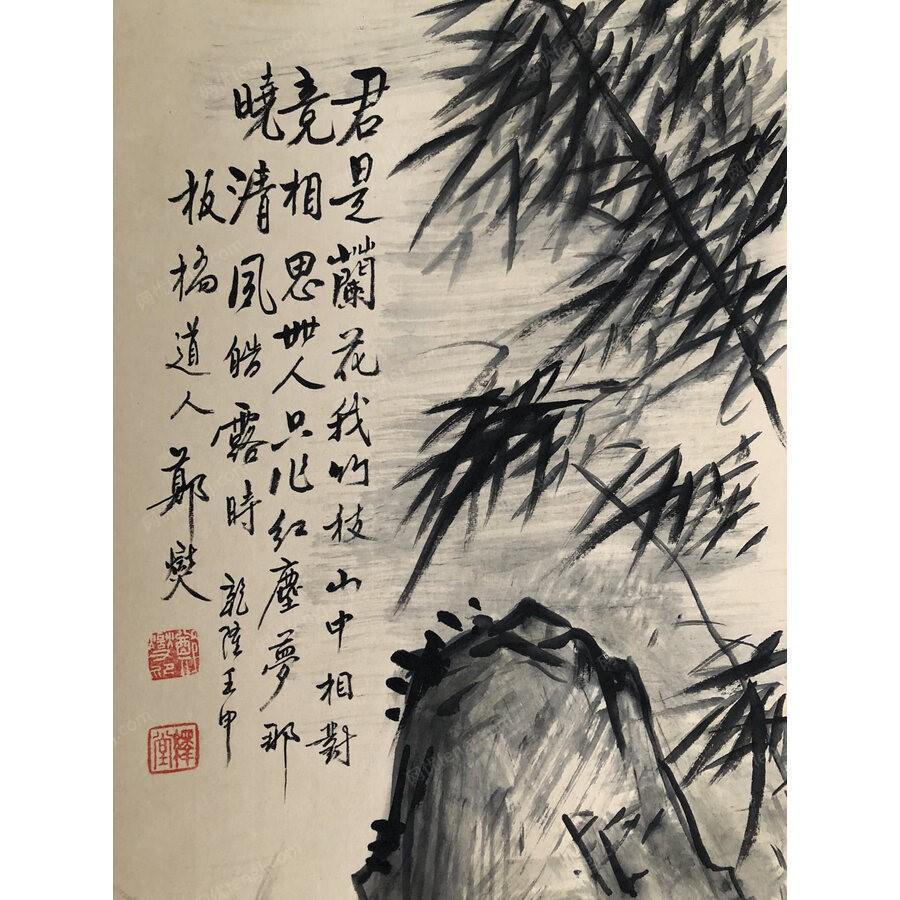 君是蘭花我竹枝山中相對
竟相思世人只作紅塵夢那
曉清風皓露時
乾隆壬申
板橋道人鄭燮